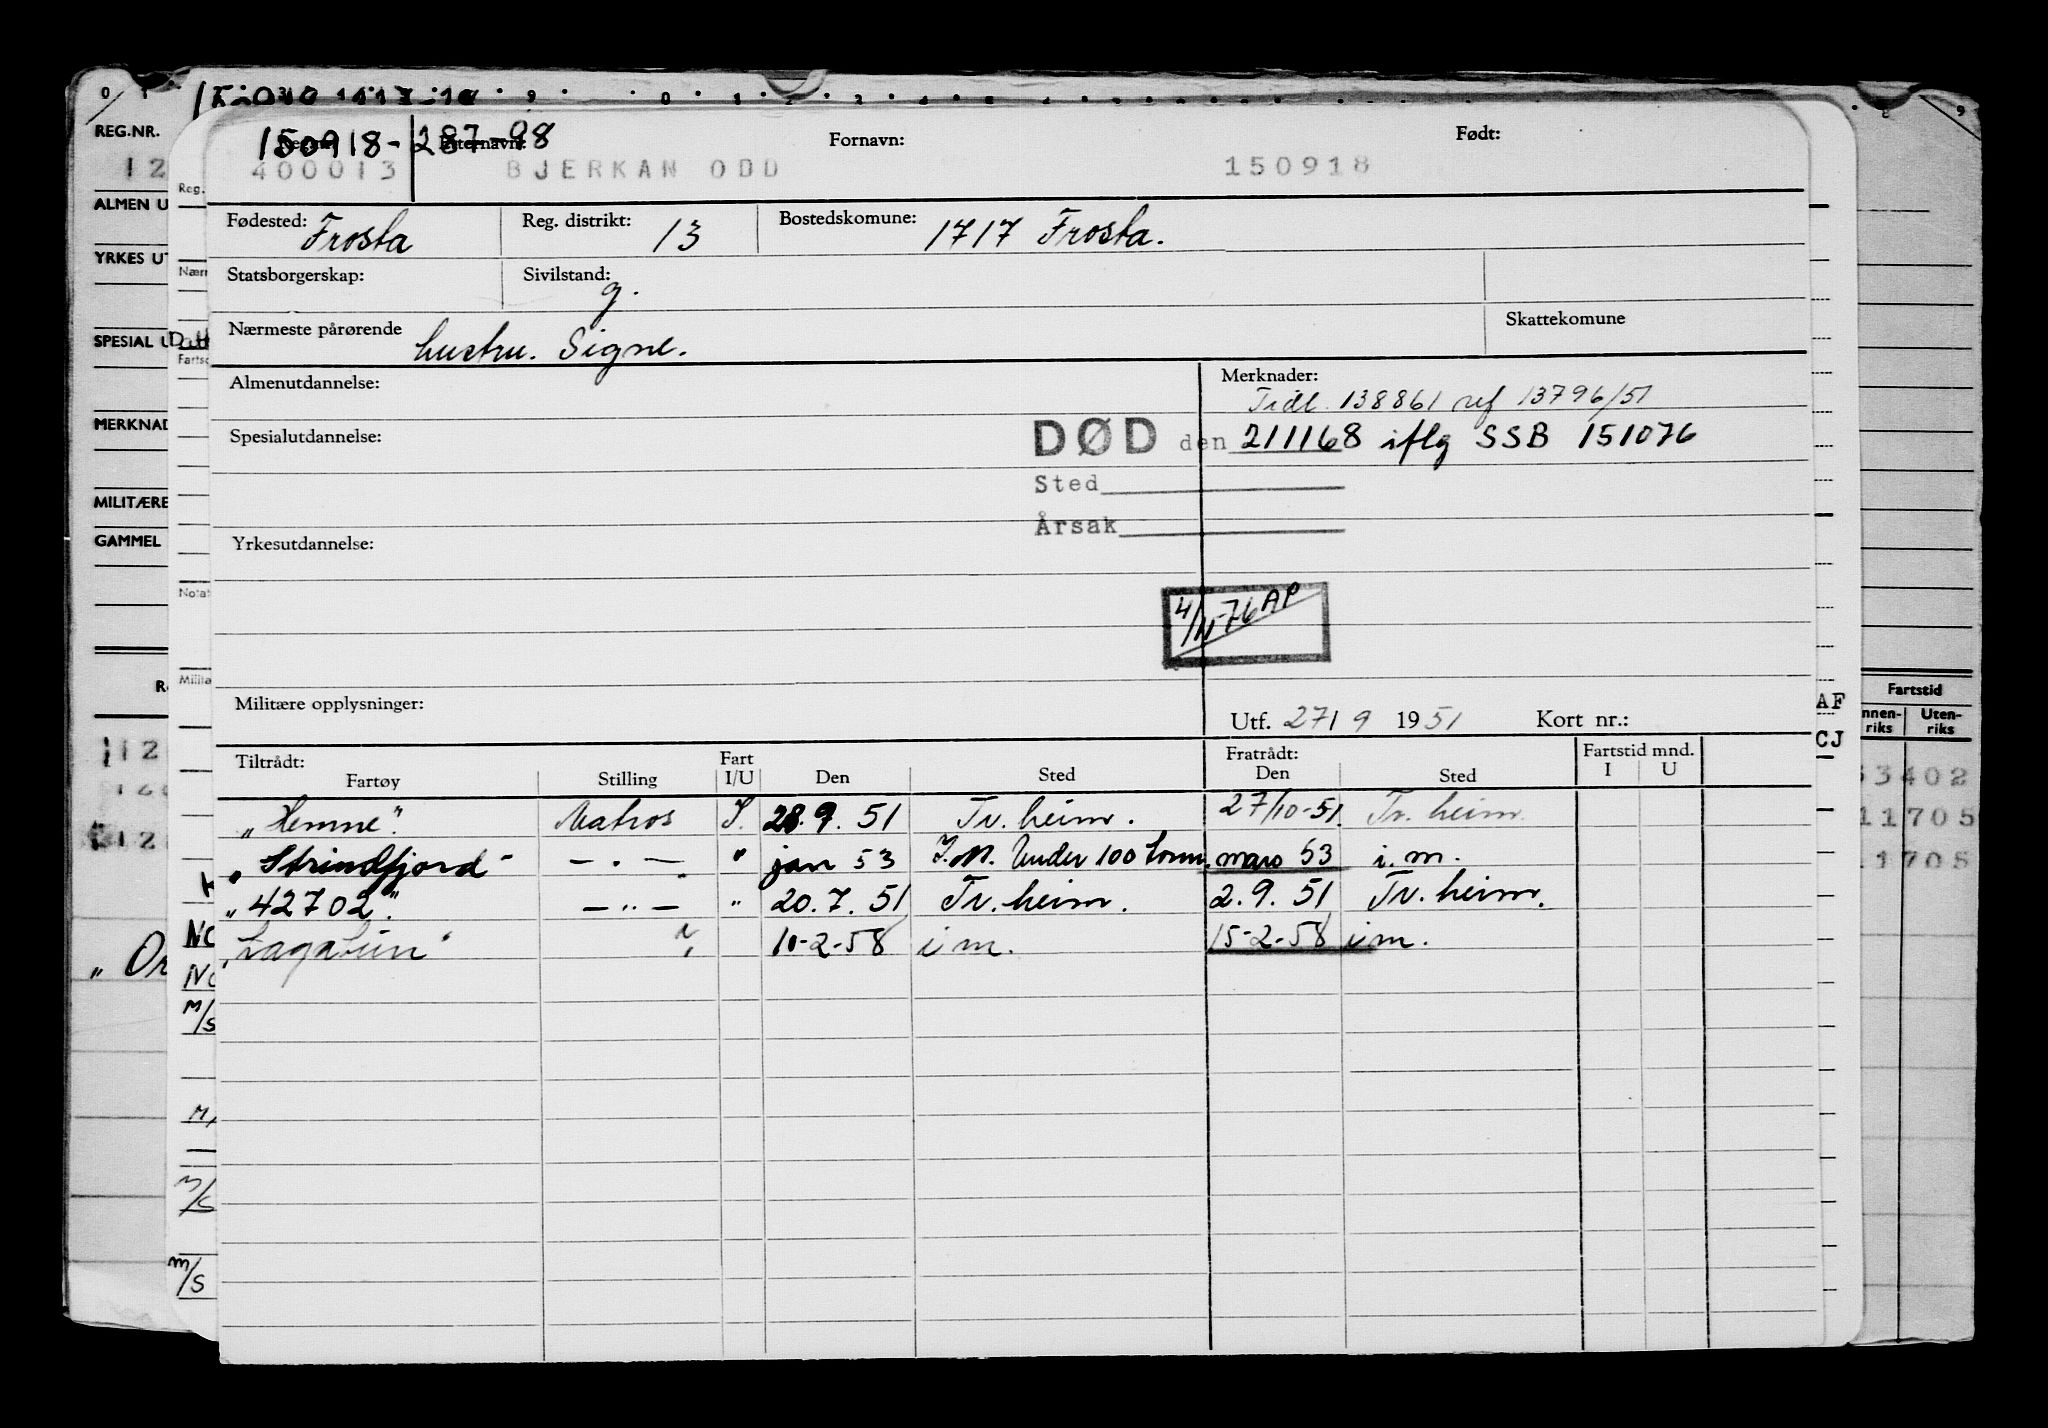 REG.NR.
ALMEN U
YRKES UT
SPESIAL U
MERKNAD
MILITÆRE
GAMMEL
150918-287-98
Fornavn: Født:
400013 BJERKAN ODD 150918
Fødested: Frosta Reg. distrikt: 13 Bostedskomune: 1717 Frosta.
Statsborgerskap: Sivilstand: g.
Nærmeste pårørende hustru. Signe. Skattekomune
Almenutdannelse: Merknader:
Tidl. 138861 ref 13796/51
Spesialutdannelse: DØD den 211168 iflg SSB 151076
Sted
Årsak
Yrkesutdannelse:
4/11-76 AP
Militære opplysninger: Utf. 27/9 1951 Kort nr.:
Tiltrådt: Fart Fratrådt: Fartstid mnd.
Fartøy Stilling I/U Den Sted Den Sted I U
„Hemne". Matros I. 28.9.51 Tr.heim. 27/10-51. Tr.heim
„Strindfjord" — . — " jan 53 I.M. Under 100 tonn. mars 53 i.m.
„42702". — " — " 20.7.51 Tr.heim. 2.9.51 Tr.heim.
„Lagatun" " 10-2-58 i m. 15-2-58 i m.
AF
CJ
Fartstid
nnen-riks Uten-riks
53402
11705
11705